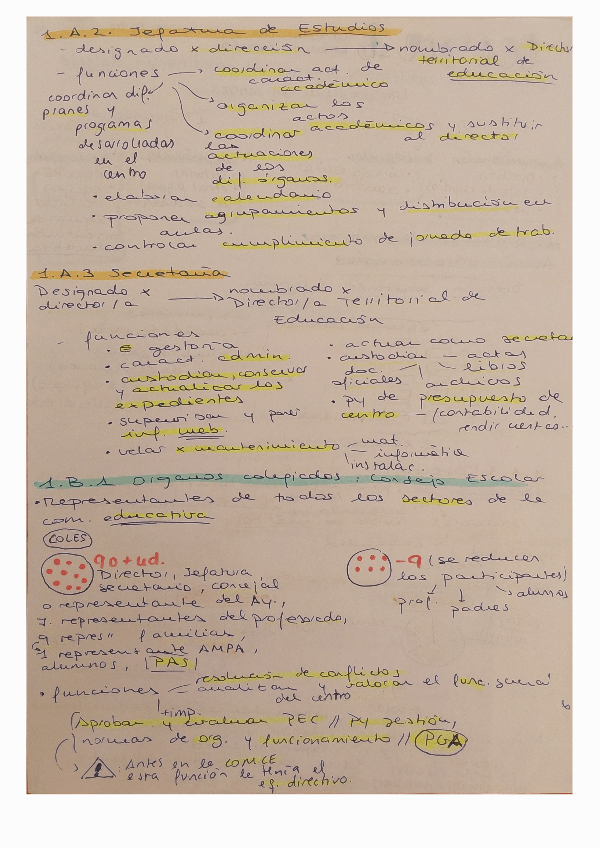 1.A.2. Jefatura de Estudios
- designado x dirección → nombrado x Director
territorial de
educación
- funciones → coordinar act. de
caract.
académico
coordinar dif.
planes y
programas
desarollados
en el
centro
organizar los
actos
académicos y sustituir
al director
coordinar
las
actuaciones
de los
dif. órganos.
• elaborar calendario
• proponer agrupamientos y distribución en
aulas.
• controlar cumplimiento de jornada de trab.
1.A.3 Secretaría
Designado x
director/a → nombrado x
Director/a Territorial de
Educación
- funciones
• gestoría
• caract. admin.
• custodiar, conservar
y actualizar los
expedientes
• supervisar y
inf. web.
• velar x mantenimiento - mat.
- informática
instalac.
• actuar como secretar
• custodiar - actas
doc. - libros
oficiales archivos
• py de presupuesto de
centro - /contabilidad.
rendir cuentas..
1.B.1 Organos colegiados: Consejo Escolar
• Representantes de todos los sectores de la
com. educativa
COLES
9 o + ud.
Director, Jefatura
secretario, concejal
o representante del Ay.,
7. representantes del profesorado,
9 repres" familias,
1 representante AMPA,
alumnos, PAS
- 9 (se reducen
los participantes)
prof. padres alumnos
• funciones - resolución de conflictos
- analizar y valorar el func. general
del centro
+ imp.
(Aprobar y evaluar PEC // Py gestión,
normas de org. y funcionamiento // PGA
! : Antes en la LOMCE
esta función la tenía el
eq. directivo.